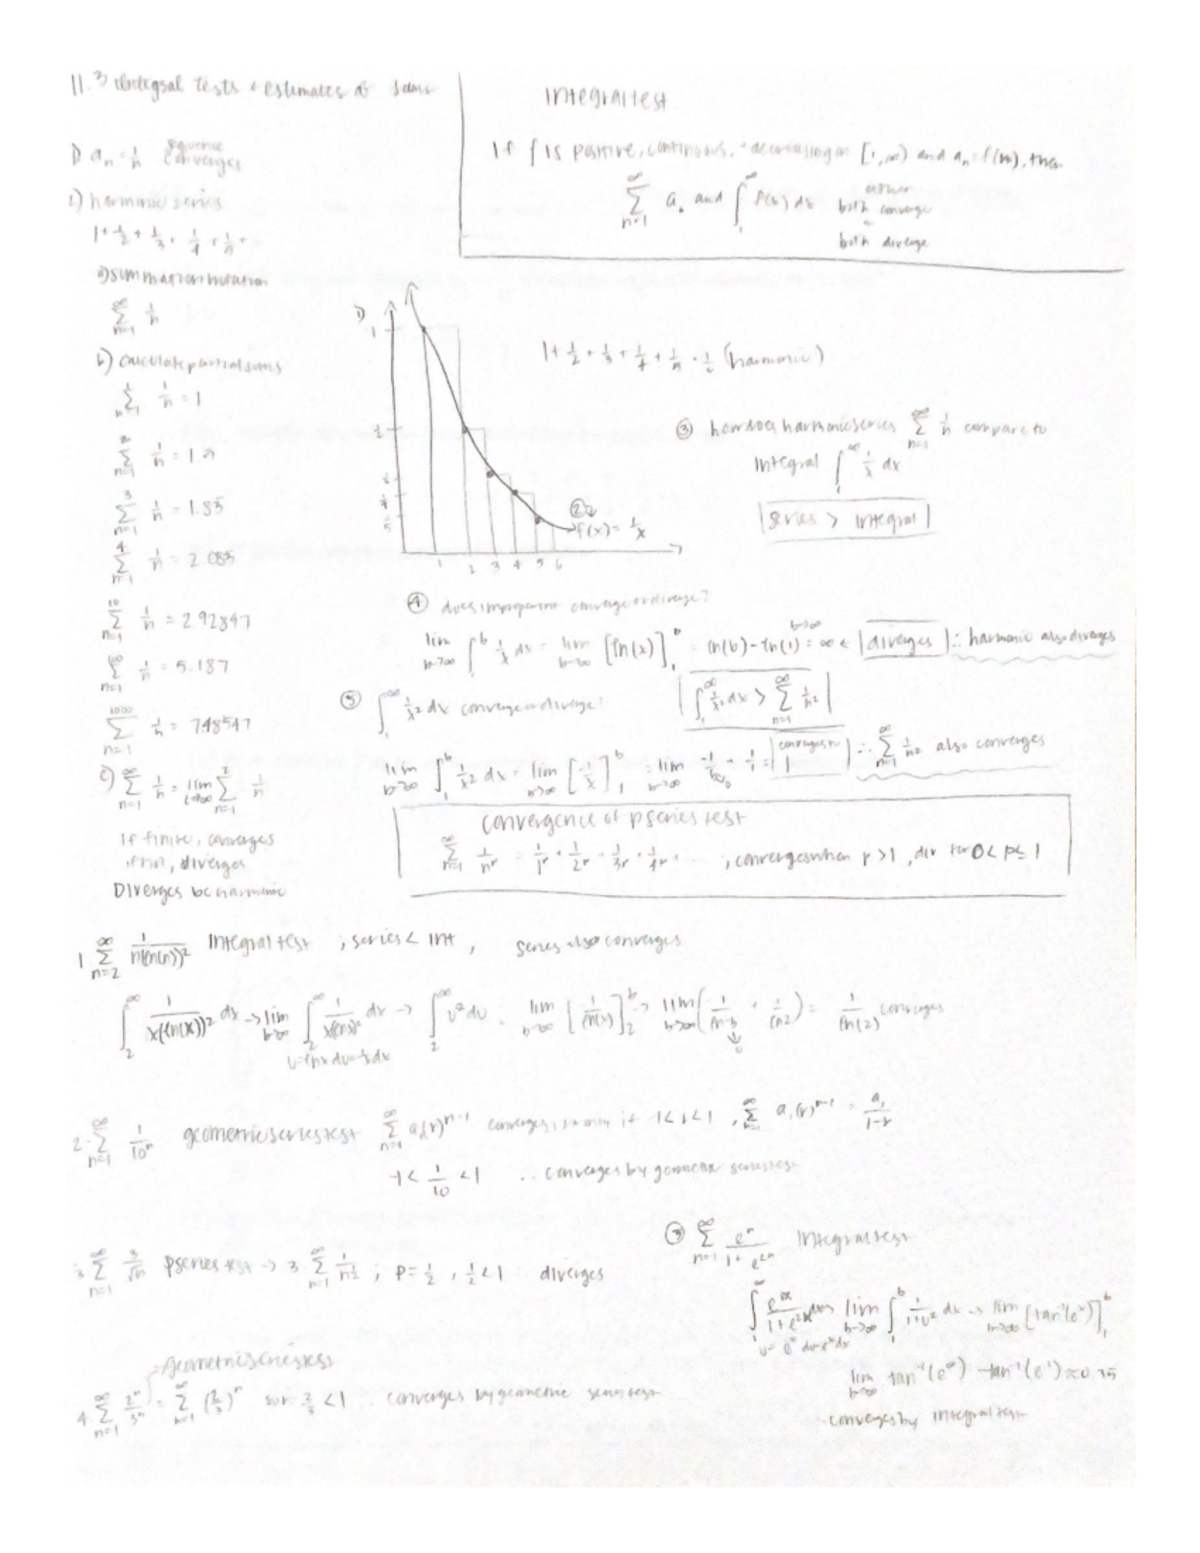 11.3 Integral tests + estimates of sums
1) aₙ = 1/n sequence converges
2) harmonic series
1 + 1/2 + 1/3 + 1/4 + 1/5 +
a) summation notation
∞ Σ n=1 1/n
b) calculate partial sums
1 Σ n=1 1/n = 1
2 Σ n=1 1/n = 1.5
3 Σ n=1 1/n = 1.83
4 Σ n=1 1/n = 2.083
10 Σ n=1 1/n = 2.92897
100 Σ n=1 1/n = 5.187
1000 Σ n=1 1/n = 7.48547
c) ∞ Σ n=1 1/n = lim Σ n=1 1/n
If finite, converges
if not, diverges
Diverges bc harmonic
Integral test
If f is positive, continuous, + decreasing on [1,∞) and aₙ = f(n), then
∞ Σ n=1 aₙ and ∫₁^∞ f(x) dx either
both converge
or
both diverge
1)
1
1/2
1/3
1/4
1/5
1 2 3 4 5 6
②
f(x) = 1/x
1 + 1/2 + 1/3 + 1/4 + 1/5 + 1/6 (harmonic)
③ how does harmonic series ∞ Σ n=1 1/n compare to
integral ∫₁^∞ 1/x dx
series > integral
④ does improper int converge or diverge?
lim b→∞ ∫₁^b 1/x dx = lim b→∞ [ln(x)]₁^b = ln(b) - ln(1) = ∞ ← diverges ∴ harmonic also diverges
⑤ ∫₁^∞ 1/x² dx converge or diverge? ∫₁^∞ 1/x² dx > ∞ Σ n=1 1/n²
lim b→∞ ∫₁^b 1/x² dx = lim b→∞ [-1/x]₁^b = lim b→∞ -1/b + 1/1 = converges to 1 ∴ ∞ Σ n=1 1/n² also converges
Convergence of p series test
∞ Σ n=1 1/nᵖ = 1/1ᵖ + 1/2ᵖ + 1/3ᵖ + 1/4ᵖ + ... , converges when p > 1, div for 0 < p ≤ 1
1. ∞ Σ n=2 1/n(ln(n))² Integral test ; series < int , series also converges
∫₂^∞ 1/x(ln(x))² dx → lim b→∞ ∫₂^∞ 1/x(lnx)² dx → ∫₂^∞ u² du = lim b→∞ [1/ln(x)]₂^b → lim b→∞ (1/ln b + 1/ln2) = 1/ln(2) converges
0
u = lnx du = 1/x dx
2. ∞ Σ n=1 1/10ⁿ geometric series test ∞ Σ n=1 a₁(r)ⁿ⁻¹ converges if -1<r<1, ∞ Σ n=1 a₁(r)ⁿ⁻¹ = a₁/1-r
-1 < 1/10 < 1 ∴ converges by geometric series test
3 ∞ Σ n=1 3/√n p series test → 3 ∞ Σ n=1 1/n^½ ; p = 1/2 , 1/2 < 1 ∴ diverges
geometric series test
4. ∞ Σ n=1 2ⁿ/3ⁿ = ∞ Σ n=1 (2/3)ⁿ 2/3 < 1 ∴ converges by geometric series test
③ ∞ Σ n=1 eⁿ/1+e²ⁿ Integral test
∫₁^∞ eˣ/1+e²ˣ dx → lim b→∞ ∫₁^b 1/1+u² dx → lim b→∞ [tan⁻¹(eˣ)]₁^b
u = eˣ du = eˣ dx
lim b→∞ tan⁻¹(e^∞) - tan⁻¹(e¹) ≈ 0.35
∴ converges by integral test